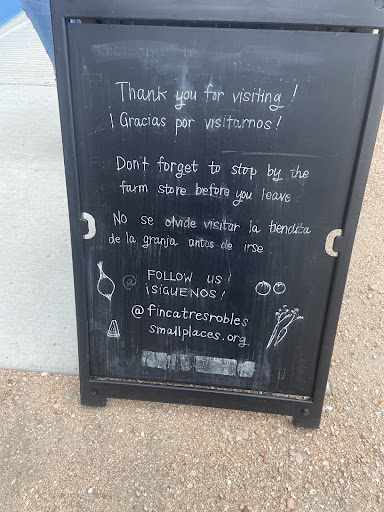 Thank you for visiting!
¡Gracias por visitarnos!
Don't forget to stop by the
farm store before you leave.
No se olvide visitar la tiendita
de la granja antes de irse
FOLLOW US!
¡SIGUENOS!
@fincatresrobles
smallplaces.org